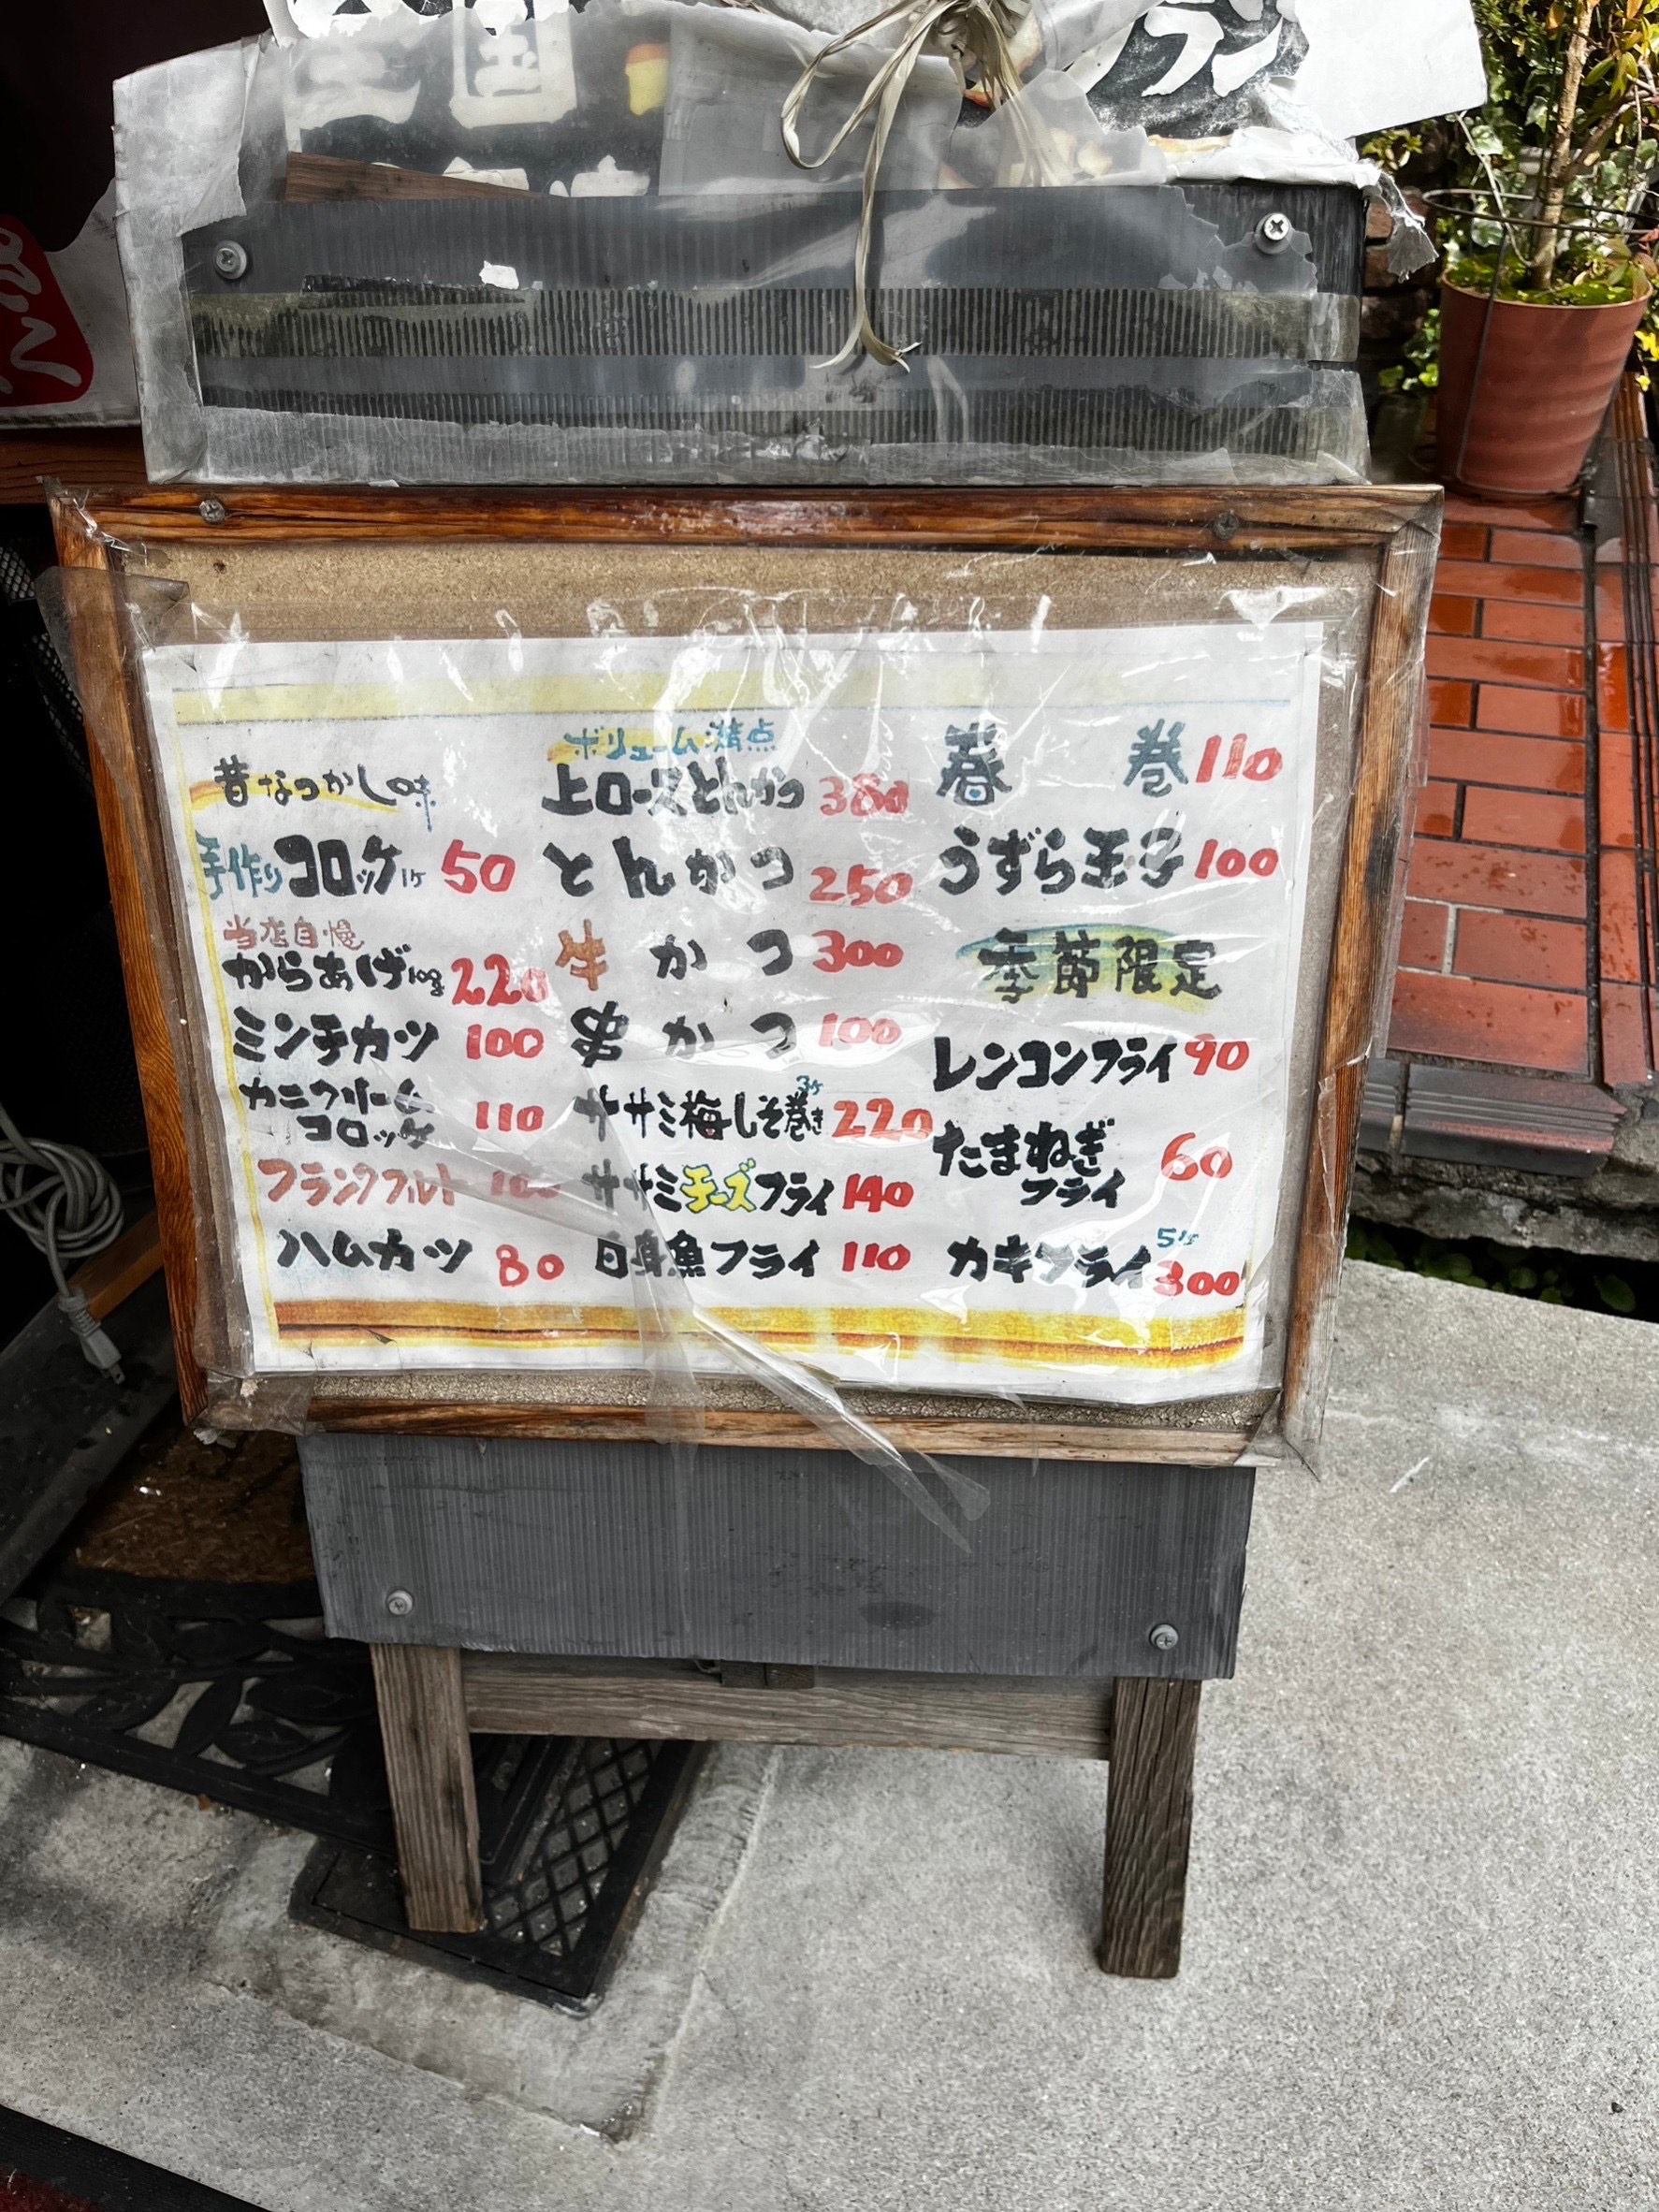 国
ラン
昔なつかし味
手作りコロッケ1ケ 50
当店自慢
からあげ100g 220
ミンチカツ 100
カニクリーム
コロッケ 110
フランクフルト 100
ハムカツ 80
ボリューム満点
上ロースとんかつ 380
とんかつ 250
牛かつ 300
串かつ 100
ササミ梅しそ巻き 3ケ 220
ササミチーズフライ 140
白身魚フライ 110
春巻 110
うずら玉子 100
季節限定
レンコンフライ 90
たまねぎ
フライ 60
カキフライ 5ケ 300